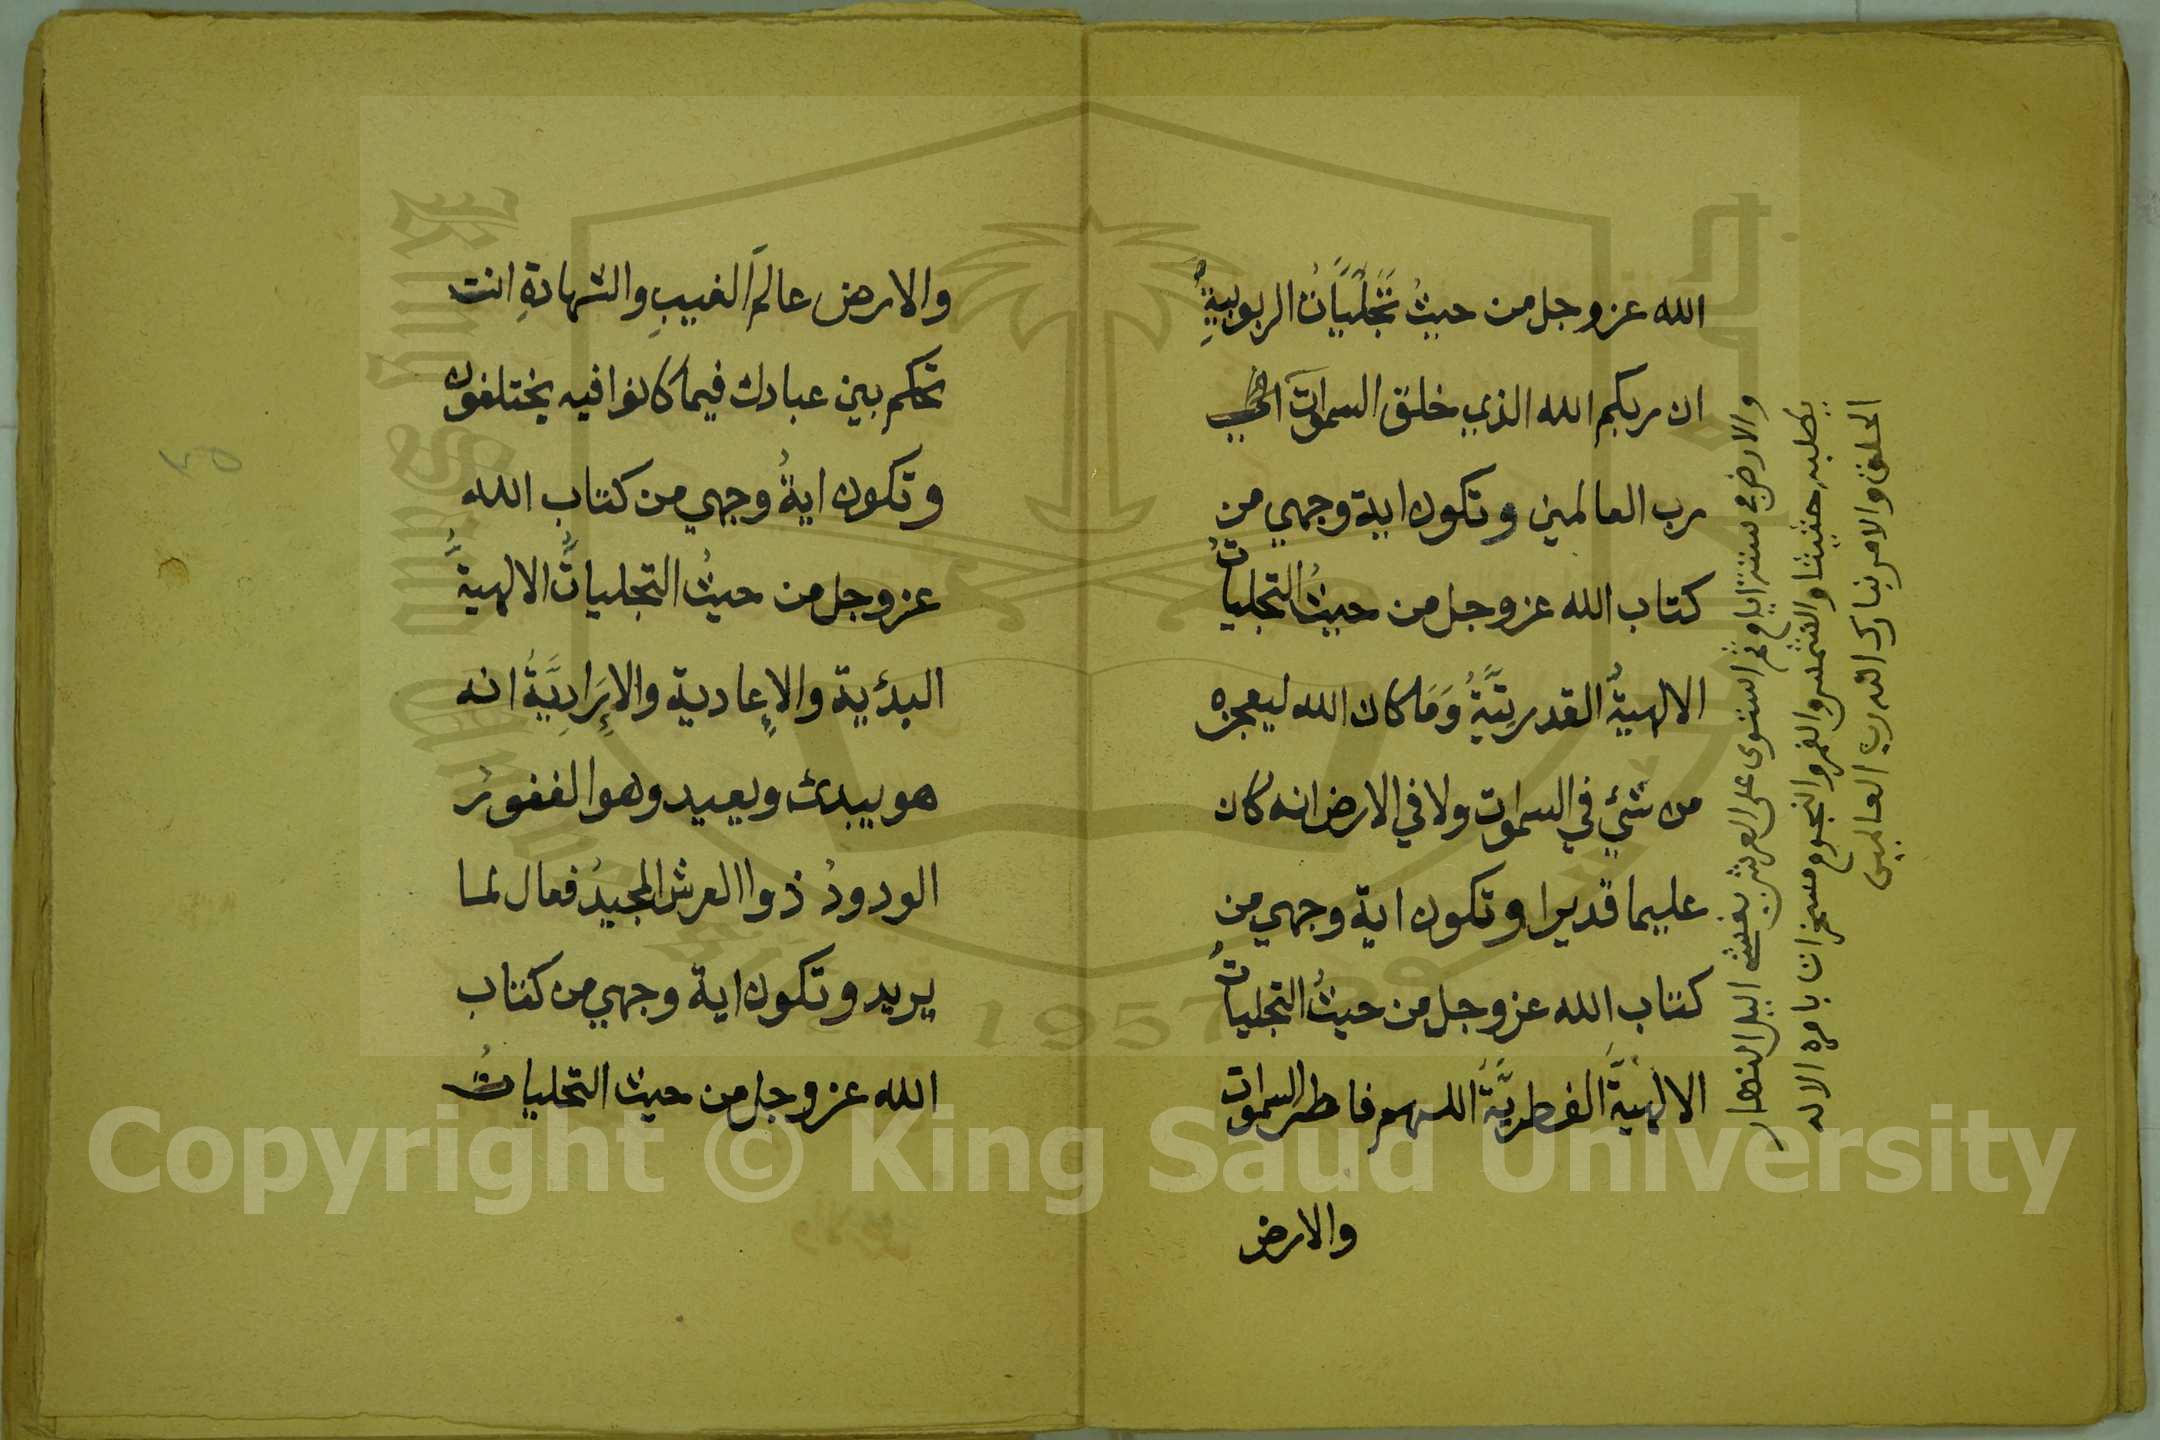 الله عز وجل من حيثُ تَجَلِّيَاتُ الربوبيةِ
ان ربكم الله الذي خلق السموات الى
رب العالمين وتكون اية وجهي من
كتاب الله عز وجل من حيثُ التجلياتُ
الالهيةُ القدريَّةُ وَمَا كان الله ليعجزه
من شئي في السموات ولا في الارض انه كان
عليما قديرا وتكون اية وجهي من
كتاب الله عز وجل من حيثُ التجلياتُ
الالهيَّةُ الفطريَّةُ اللهم فاطر السموات
والارض
والارض في ستة ايام ثم استوى على العرش يغشى اليل النهار
يطلبه حثيثا والشمس والقمر والنجوم مسخرات بامره الا له
الخلق والامر تبارك الله رب العالمين
والارض عالمَ الغيبِ والشهادةِ انت
تحكم بين عبادك فيما كانوا فيه يختلفون
وتكون ايةُ وجهي من كتاب الله
عز وجل من حيثُ التجلياتُ الالهيةُ
البدئية والاِعادية والاِرَادِيَّةُ انه
هو يبدئ ويعيد وهو الغفورُ
الودودُ ذوا العرش المجيدُ فعال لما
يريد وتكون اية وجهي من كتاب
الله عز وجل من حيث التجلياتُ
٣٥
King Saud University
1957
Copyright © King Saud University